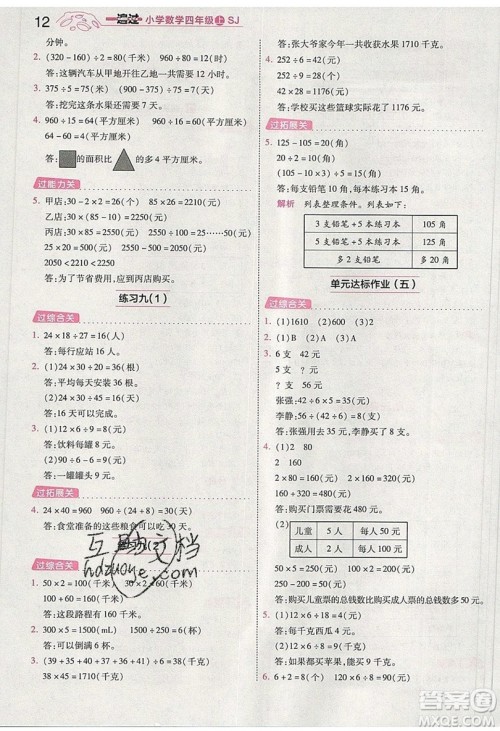 12 一遍过 小学数学四年级上 SJ
分钟。
2. (320-160)÷2=80(千米) 320÷80=4(时)
答:这辆汽车从甲地开往乙地一共需要 4 小时。
3. 375÷5=75(米) 975÷75=13(天)
答:挖完这条水渠需要 13 天。
4. 960÷15=64(平方厘米) 960÷(15+9)=40(平方厘米)
64-40=24(平方厘米)
答: 的面积比 的多 24 平方厘米。
过能力关
5. 甲店:30-2×5=20(千克) 20×110=2200(元)
乙店:30×(85-10)=2250(元)
丙店:25×85=2125(元) 2125-75=2050(元)
2050<2210<2250
答:为了节省费用,应到丙店购买。
练习九(1)
过综合关
1. 24×18÷27=16(人)
答:每行应站 16 人。
2. (1)24×30÷20=36(根)
答:每天安装护栏 36 根。
(2)24×30÷(24+21)=16(天)
答:16 天可以完成。
3. (1)12×6÷9=8(元)
答:饮料每罐 8 元。
(2)12×6÷8=9(罐)
答:一罐罐头。
过拓展关
4. 24×40=960(千克) 960÷(24+8)=30(天)
答:食堂准备的这些粮食可以吃 30 天。
练习九(2)
互助文档
hdzuoye.com
过综合关
1. 50×2=100(千米) 30×2=60(千米)
100+60=160(千米)
答:这段路程有 160 千米。
2. 300×5=1500(mL) 1500÷250=6(杯)
答:可以倒满 6 杯。
3. (39+35+40+37+36+41+38)÷7=38(千克)
38×45=1710(千克)
答:张大爷家今年一共收获苹果 1710 千克。
4. 252÷6=42(元) 42×(6×5-2)=1176(元)
答:学校买这些篮球实际花了 1176 元。
过拓展关
5. 125-105=20(角)
20÷2=10(角) (105-3×10)÷5=15(角)
答:每支铅笔 10 角,每本练习本 15 角。
解析 列表整理条件。列表如下:
3 支铅笔+5 本练习本 105 角
5 支铅笔+5 本练习本 125 角
多 2 支铅笔 多 20 角
单元达标作业(五)
过综合关
1. (1)1610 (2)320 (3)4000
2. (1)18 20 640 (2)9 72
3. 6 支 42 元
5 支 ?元
? 支 56 元
张强:42÷6×5=35(元)
李静:56÷(42÷6)=8(支)
答:张强用去 35 元,李静买了 8 支。
4. (1)(2) 2 80
5 32
80×2=160(元) 32×5=160(元)
160+160=320(元)
答:购买门票需要 320 元。
(2) 儿童 5 人 每人 50 元
成人 2 人 每人 100 元
50×5=250(元) 100×2=200(元)
250-200=50(元)
答:购买儿童票的总钱数比购买成人票的总钱数多 50 元。
5. (1)12÷3=4(元) 12÷2=6(元)
答:如果都买苹果,每千克 4 元;如果都买梨,每千克 6 元。
6. 6+2=8(个) 6×8=48(元)
答案圈
MXQE.COM